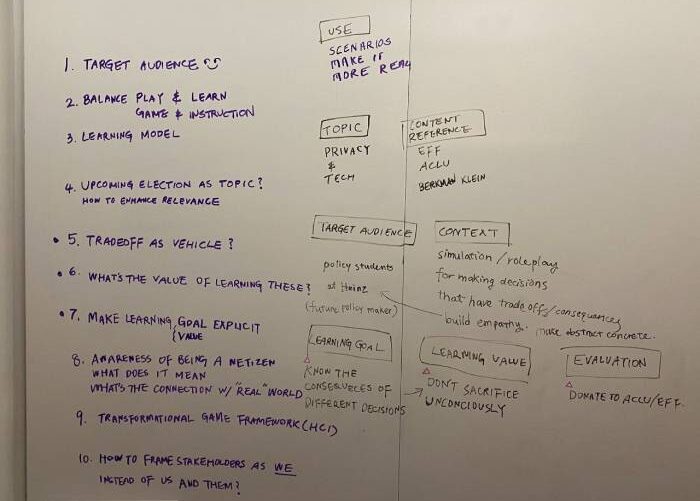 1. TARGET AUDIENCE
2. BALANCE PLAY & LEARN
GAME & INSTRUCTION
3. LEARNING MODEL
4. UPCOMING ELECTION AS TOPIC?
HOW TO ENHANCE RELEVANCE
• 5. TRADEOFF AS VEHICLE?
• 6. WHAT'S THE VALUE OF LEARNING THESE?
• 7. MAKE LEARNING GOAL EXPLICIT
VALUE
8. AWARENESS OF BEING A NETIZEN
WHAT DOES IT MEAN
WHAT'S THE CONNECTION W/ "REAL" WORLD
9. TRANSFORMATIONAL GAME FRAMEWORK (HCI)
10. HOW TO FRAME STAKEHOLDERS AS WE
INSTEAD OF US AND THEM?
USE
SCENARIOS
MAKE IT
MORE REAL
TOPIC
PRIVACY
&
TECH
CONTENT
REFERENCE
EFF
ACLU
BERKMAN KLEIN
TARGET AUDIENCE
policy students
at Heinz
(future policy maker)
CONTEXT
simulation/roleplay
for making decisions
that have trade offs/consequences
build empathy. make abstract concrete.
LEARNING GOAL
KNOW THE
CONSEQUECES OF
DIFFERENT DECISIONS
LEARNING VALUE
DON'T SACRIFICE
UNCONCIOUSLY
EVALUATION
DONATE TO ACLU/EFF.